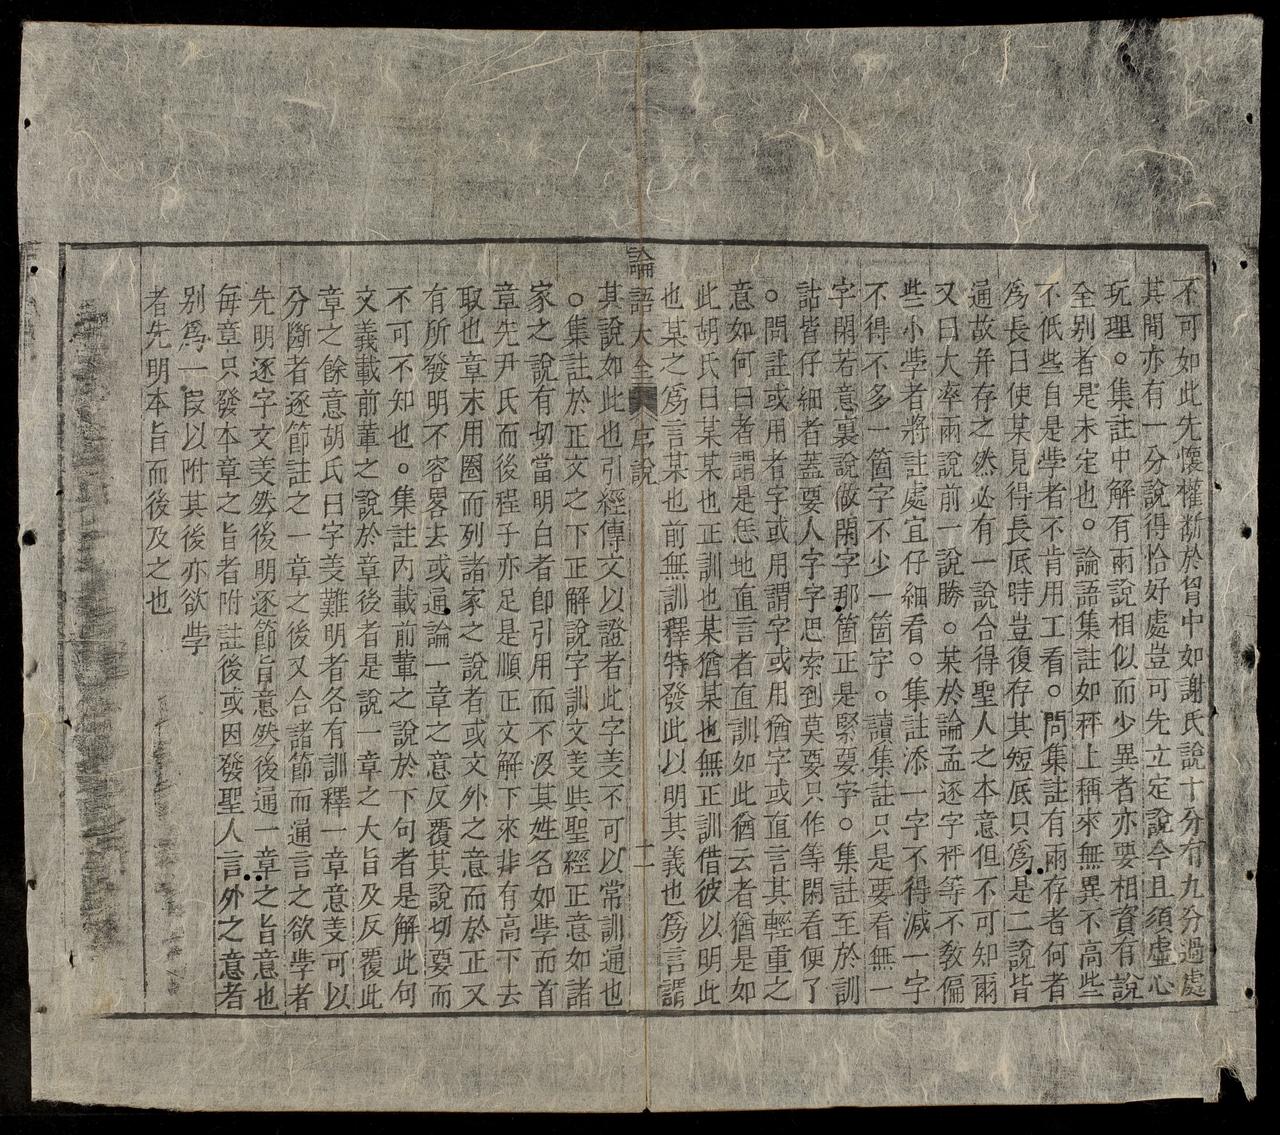 不可如此先懷權斷於胷中如謝氏說十分有九分過處
其間亦有一分說得恰好處豈可先立定說今且須虛心
玩理。集註中解有兩說相似而少異者亦要相資有說
全别者是未定也。論語集註如秤上稱來無異不高些
不低些自是學者不肯用工看。問集註有兩存者何者
爲長曰使某見得長底時豈復存其短底只爲是二說皆
通故幷存之然必有一說合得聖人之本意但不可知爾
又曰大率兩說前一說勝。某於論孟逐字秤等不敎偏
些小學者將註處宜仔細看。集註添一字不得減一字
不得不多一箇字不少一箇字。讀集註只是要看無一
字閑若意裏說做閑字那箇正是緊要字。集註至於訓
詁皆仔細者蓋要人字字思索到莫要只作等閑看便了
。問註或用者字或用謂字或用猶字或直言其輕重之
意如何曰者謂是恁地直言者直訓如此猶云者猶是如
此胡氏曰某某也正訓也某猶某也無正訓借彼以明此
也某之爲言某也前無訓釋特發此以明其義也爲言謂
論語大全 序說 十一
其說如此也引經傳文以證者此字義不可以常訓通也
。集註於正文之下正解說字訓文義與聖經正意如諸
家之說有切當明白者卽引用而不没其姓名如學而首
章先尹氏而後程子亦足是順正文解下來非有高下去
取也章末用圈而列諸家之說者或文外之意而於正文
有所發明不容畧去或通論一章之意反覆其說切要而
不可不知也。集註內載前輩之說於下句者是解此句
文義載前輩之說於章後者是說一章之大旨及反覆此
章之餘意胡氏曰字義難明者各有訓釋一章意義可以
分斷者逐節註之一章之後又合諸節而通言之欲學者
先明逐字文義然後明逐節旨意然後通一章之旨意也
每章只發本章之旨者附註後或因發聖人言外之意者
别爲一段以附其後亦欲學
者先明本旨而後及之也